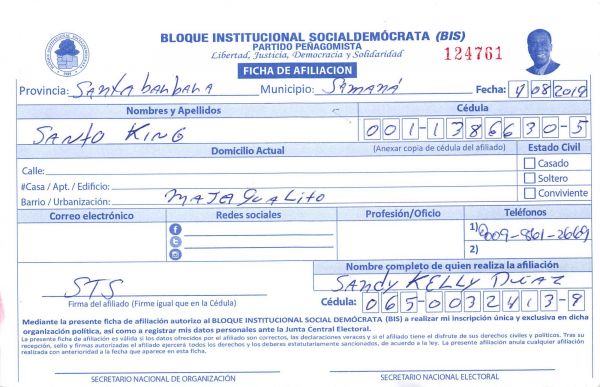 BLOQUE INSTITUCIONAL SOCIALDEMÓCRATA (BIS)
PARTIDO PEÑAGOMISTA
Libertad, Justicia, Democracia y Solidaridad
124761
FICHA DE AFILIACION
Provincia: Santa barbara Municipio: Samaná Fecha: 4/08/2019
Nombres y Apellidos Cédula
SANTO KING 001-1386630-5
Domicilio Actual (Anexar copia de cédula del afiliado) Estado Civil
Calle: Casado
#Casa / Apt. / Edificio: Soltero
Barrio / Urbanización: MAJAGUALITO Conviviente
Correo electrónico Redes sociales Profesión/Oficio Teléfonos
1) 809-861-2669
2)
Nombre completo de quien realiza la afiliación
STS SANDY KELLY DIAZ
Firma del afiliado (Firme igual que en la Cédula) Cédula: 065-0032413-9
Mediante la presente ficha de afiliación autorizo al BLOQUE INSTITUCIONAL SOCIAL DEMÓCRATA (BIS) a realizar mi inscripción única y exclusiva en dicha
organización política, así como a registrar mis datos personales ante la Junta Central Electoral.
La presente ficha de afiliación es válida si los datos ofrecidos por el afiliado son correctos, las declaraciones veraces y si el afiliado tiene el disfrute de sus derechos civiles y políticos. Tras su
recepción, sello y firmas autorizadas el afiliado ejercerá todos los derechos y los deberes estatutariamente sancionados, de acuerdo a la ley. La presente afiliación anula cualquier afiliación
realizada con anterioridad a la fecha que aparece en esta ficha.
SECRETARIO NACIONAL DE ORGANIZACIÓN SECRETARIO NACIONAL ELECTORAL